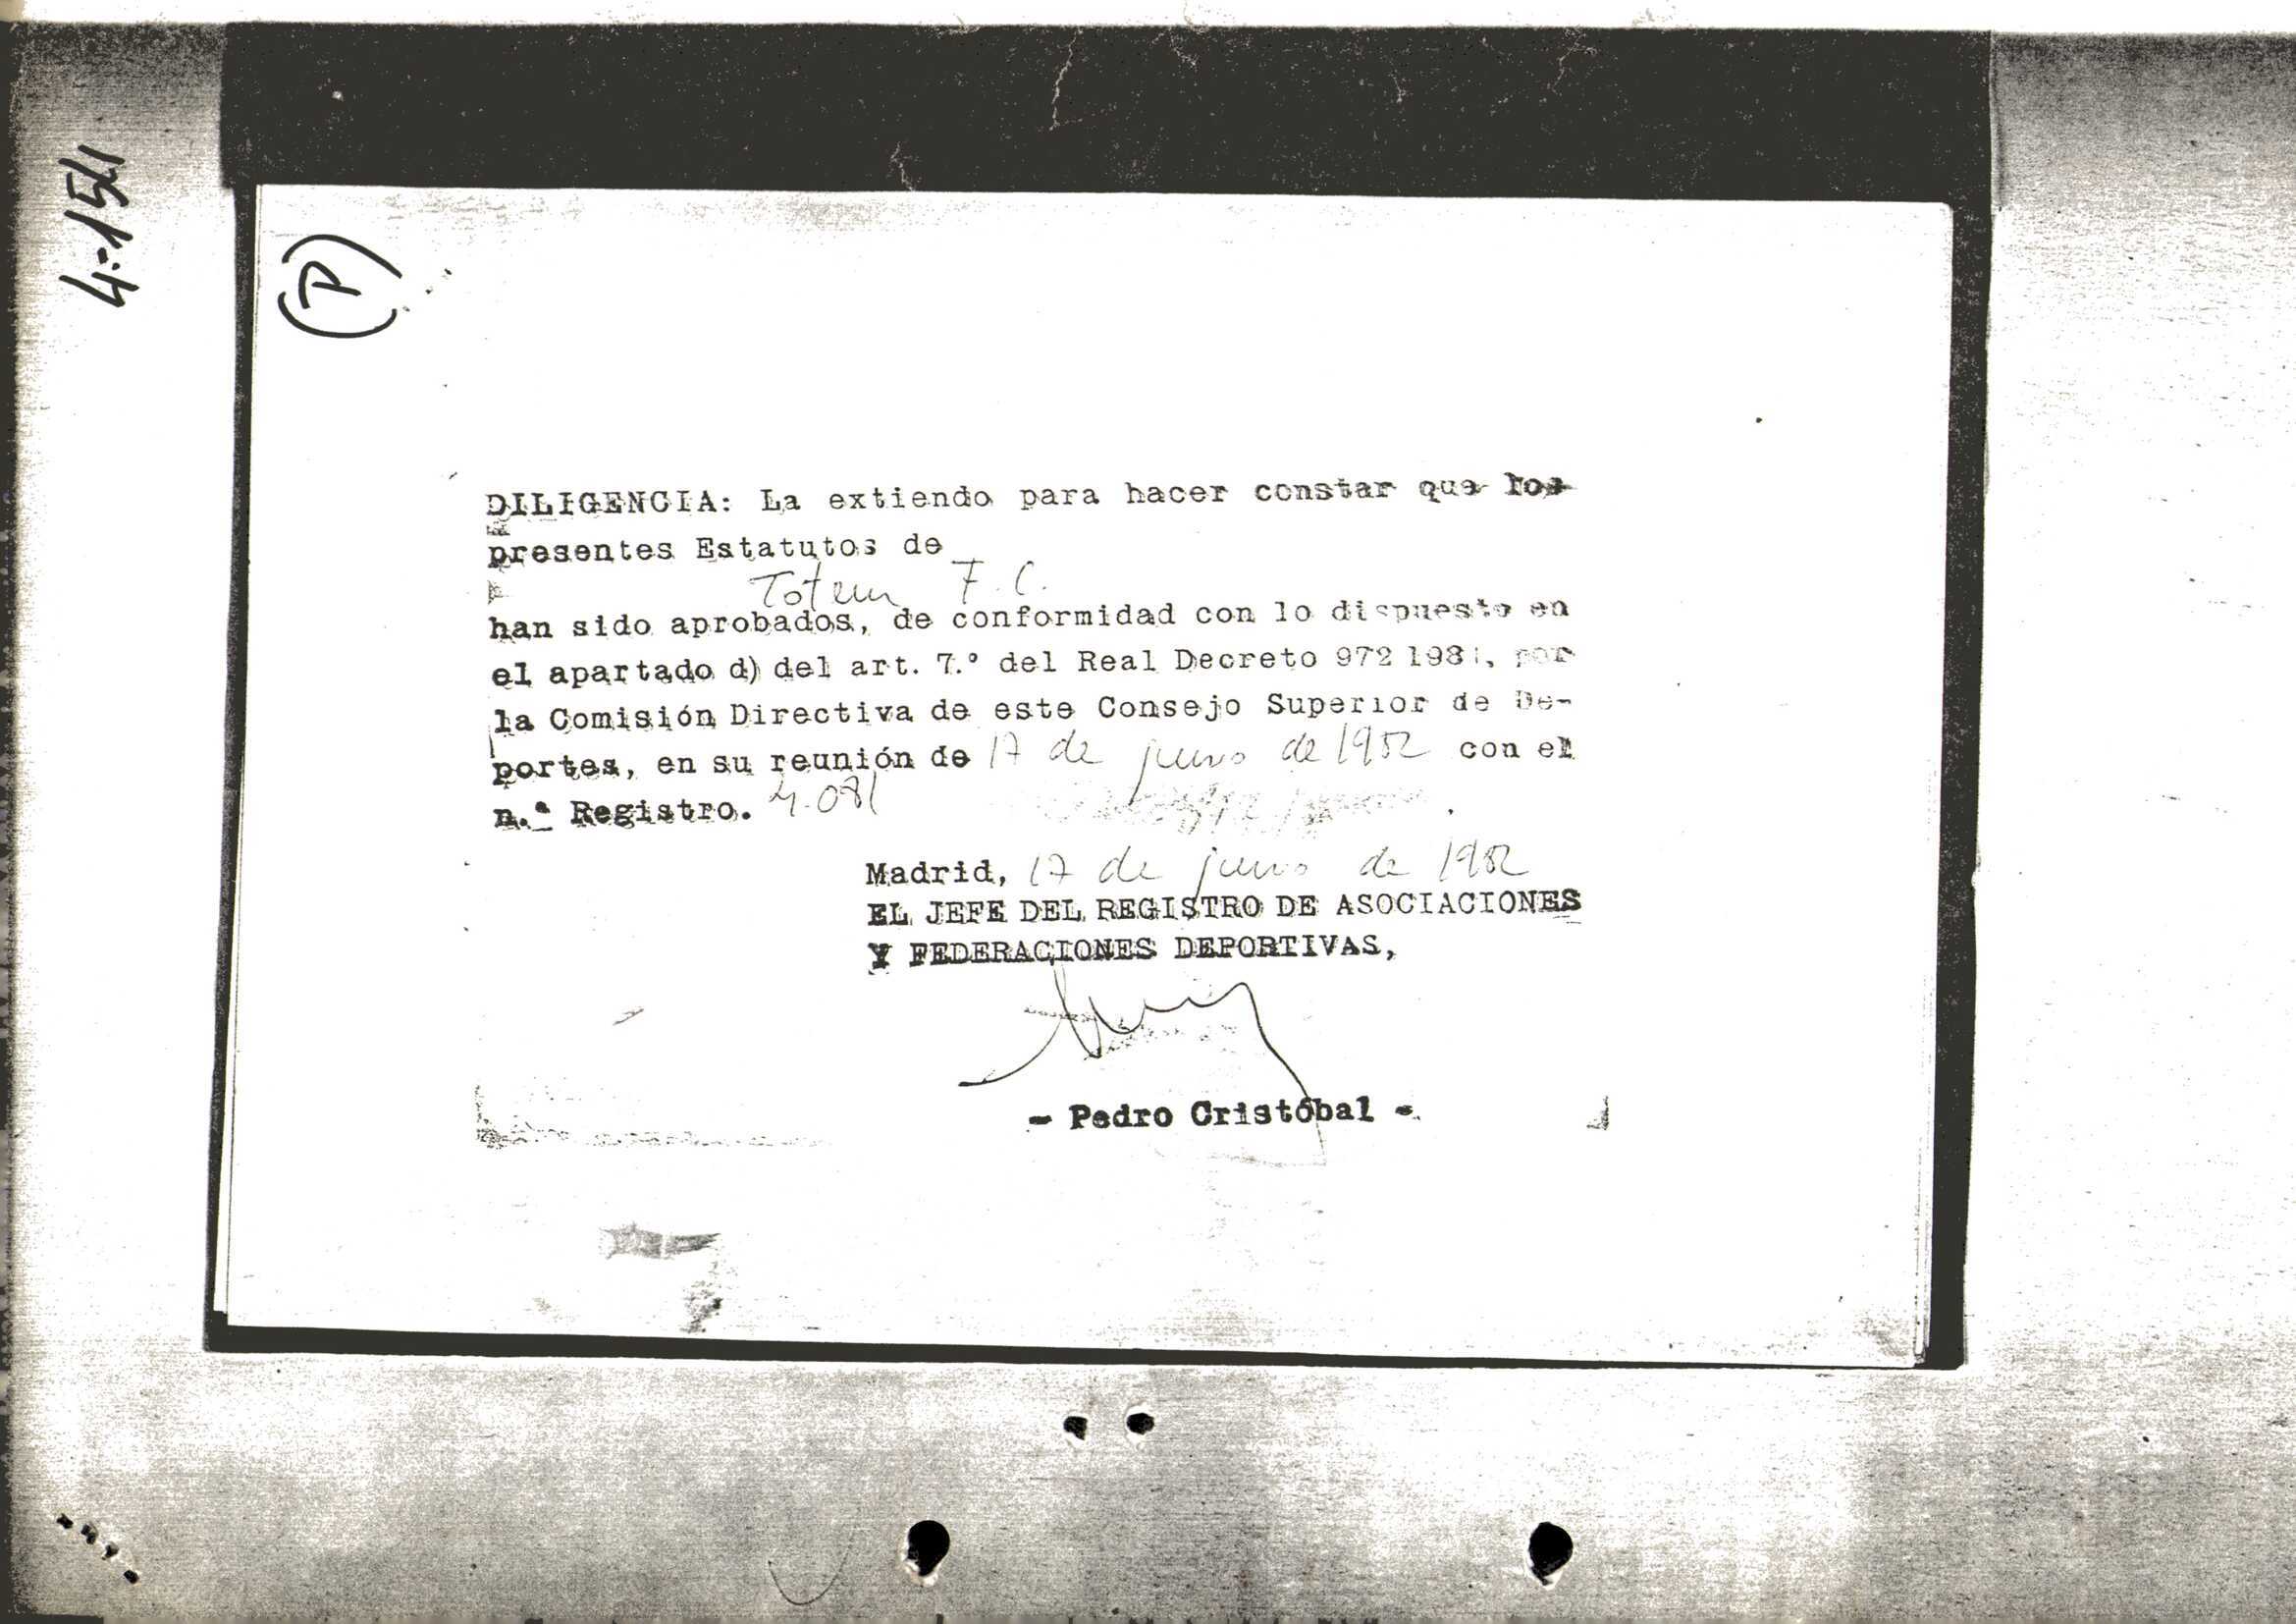 4.-154
(P)
DILIGENCIA: La extiendo para hacer constar que los
presentes Estatutos de
Totem F.C.
han sido aprobados, de conformidad con lo dispuesto en
el apartado d) del art. 7.º del Real Decreto 972 1981, por
la Comisión Directiva de este Consejo Superior de De-
portes, en su reunión de 17 de junio de 1982 con el
n.º Registro. 4.081
Madrid, 17 de junio de 1982
EL JEFE DEL REGISTRO DE ASOCIACIONES
Y FEDERACIONES DEPORTIVAS,
- Pedro Cristóbal -